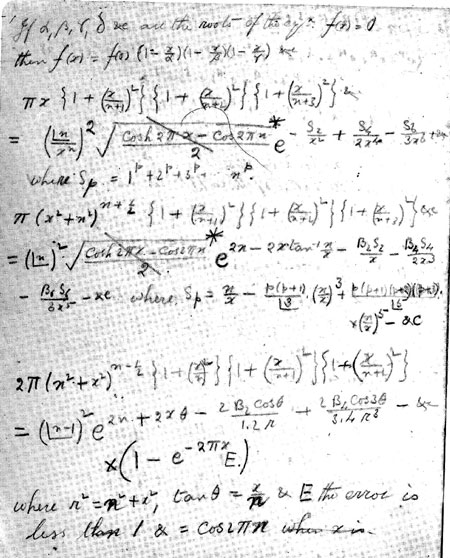 If α, β, γ, δ &c are the roots of the eqn. f(x) = 0
then f(x) = f(0) (1 - x/α)(1 - x/β)(1 - x/γ) &c
πx {1 + (x/(n+1))²} {1 + (x/(n+2))²} {1 + (x/(n+3))²} &
= (|n/xⁿ)² √((Cosh 2πx - Cos 2πn)/2)* e^(- S₂/x² + S₄/2x⁴ - S₆/3x⁶ + &c
where Sₚ = 1ᵖ + 2ᵖ + 3ᵖ + nᵖ.
π (x² + n²)^(n+½) {1 + (x/(n+1))²} {1 + (x/(n+2))²} {1 + (x/(n+3))²} &c
= (|n)² √((Cosh 2πx - Cos 2πn)/2)* e^(2n - 2x tan⁻¹ n/x - B₂S₂/x - B₄S₄/2x³
- B₆S₆/3x⁵ - &c where Sₚ = n/x - p(p+1)/|3 · (n/x)³ + p(p+1)(p+2)(p+3)/|5
× (n/x)⁵ - &c
2π (n² + x²)^(n-½) {1 + (x/n)²} {1 + (x/(n+1))²} {1 + (x/(n+2))²}
= (|n-1)² e^(2n + 2xθ - 2 B₂ Cos θ/1.2 r + 2 B₄ Cos 3θ/3.4 r³ - &c
× (1 - e^(-2πx) E.)
where r² = n² + x², tan θ = x/n & E the error is
less than 1 & = cos 2πn when x is